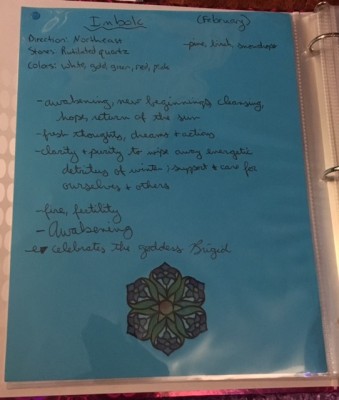 Imbolc (February)
Direction: Northeast
Stone: Rutilated quartz
Colors: white, gold, green, red, pink
- pine, birch, snowdrops
- awakening, new beginnings, cleansing,
hope, return of the sun
- fresh thoughts, dreams + actions
- clarity + purity to wipe away energetic
detritus of winter; support + care for
ourselves + others
- fire, fertility
- Awakening
- celebrates the goddess Brigid